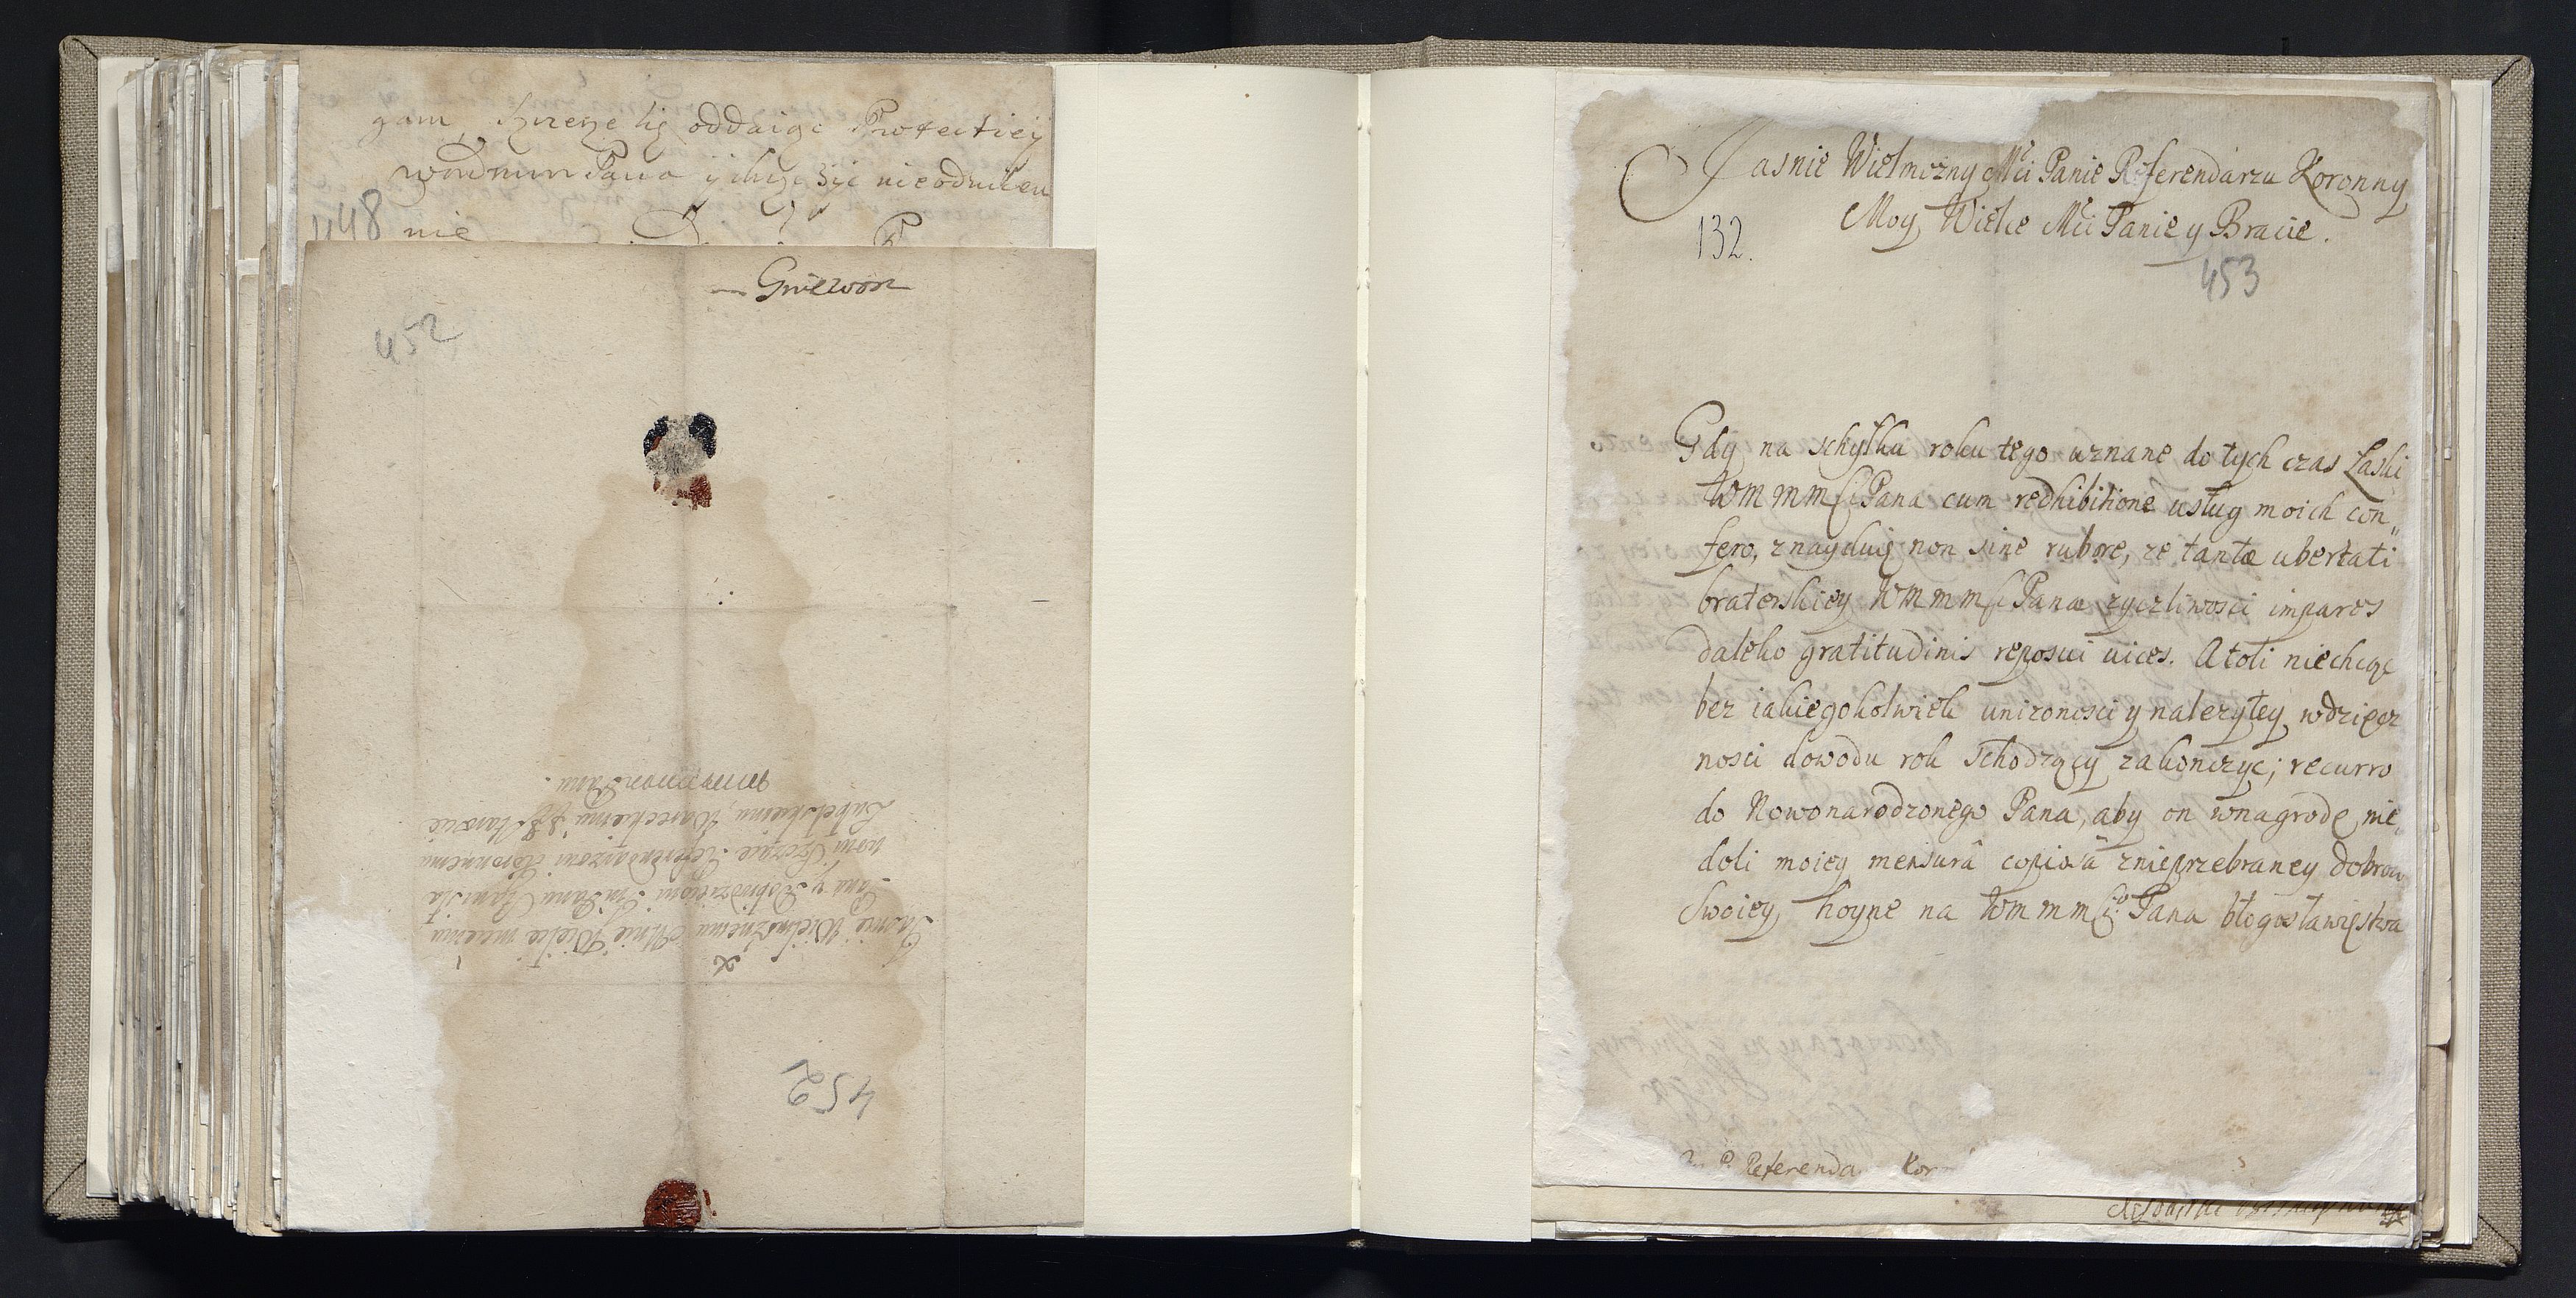 gam, szczeze się oddaiąc Protectiey
nie
448
Gniewosz
452
Jasnie Wielmoznemu Mnie Wielce mciemu
Panu y Dobrodzieiowi Jm Panu
Referendarzowi Koronnemu
Lubelskiemu, Wareckiemu Staroscie
452
Jasnie Wielmozny Mci Panie Referendarzu Koronny
Moy Wielce Mci Panie y Bracie.
132.
453
Gdy na schyłku roku tego uznane do tych czas Łaski
WMMMści Pana cum redhibitione usług moich con„
fero, znayduię non sine rubore, ze tantæ ubertati
braterskiey WMMMści Pana zyczliwosci impares
daleko gratitudinis reposui vices. Atoli niechcąc
bez iakiegokolwiek unizonosci y nalezytey wdzięcz
nosci dowodu rok schodzący zakonczyc; recurro
do Nowonarodzonego Pana, aby on wnagrodę nie„
doli moiey mensurâ copiosâ znieprzebraney dobroci
Swoiey, hoyne na WMMMścio Pana błogosławięstwa
P Referenda Kor